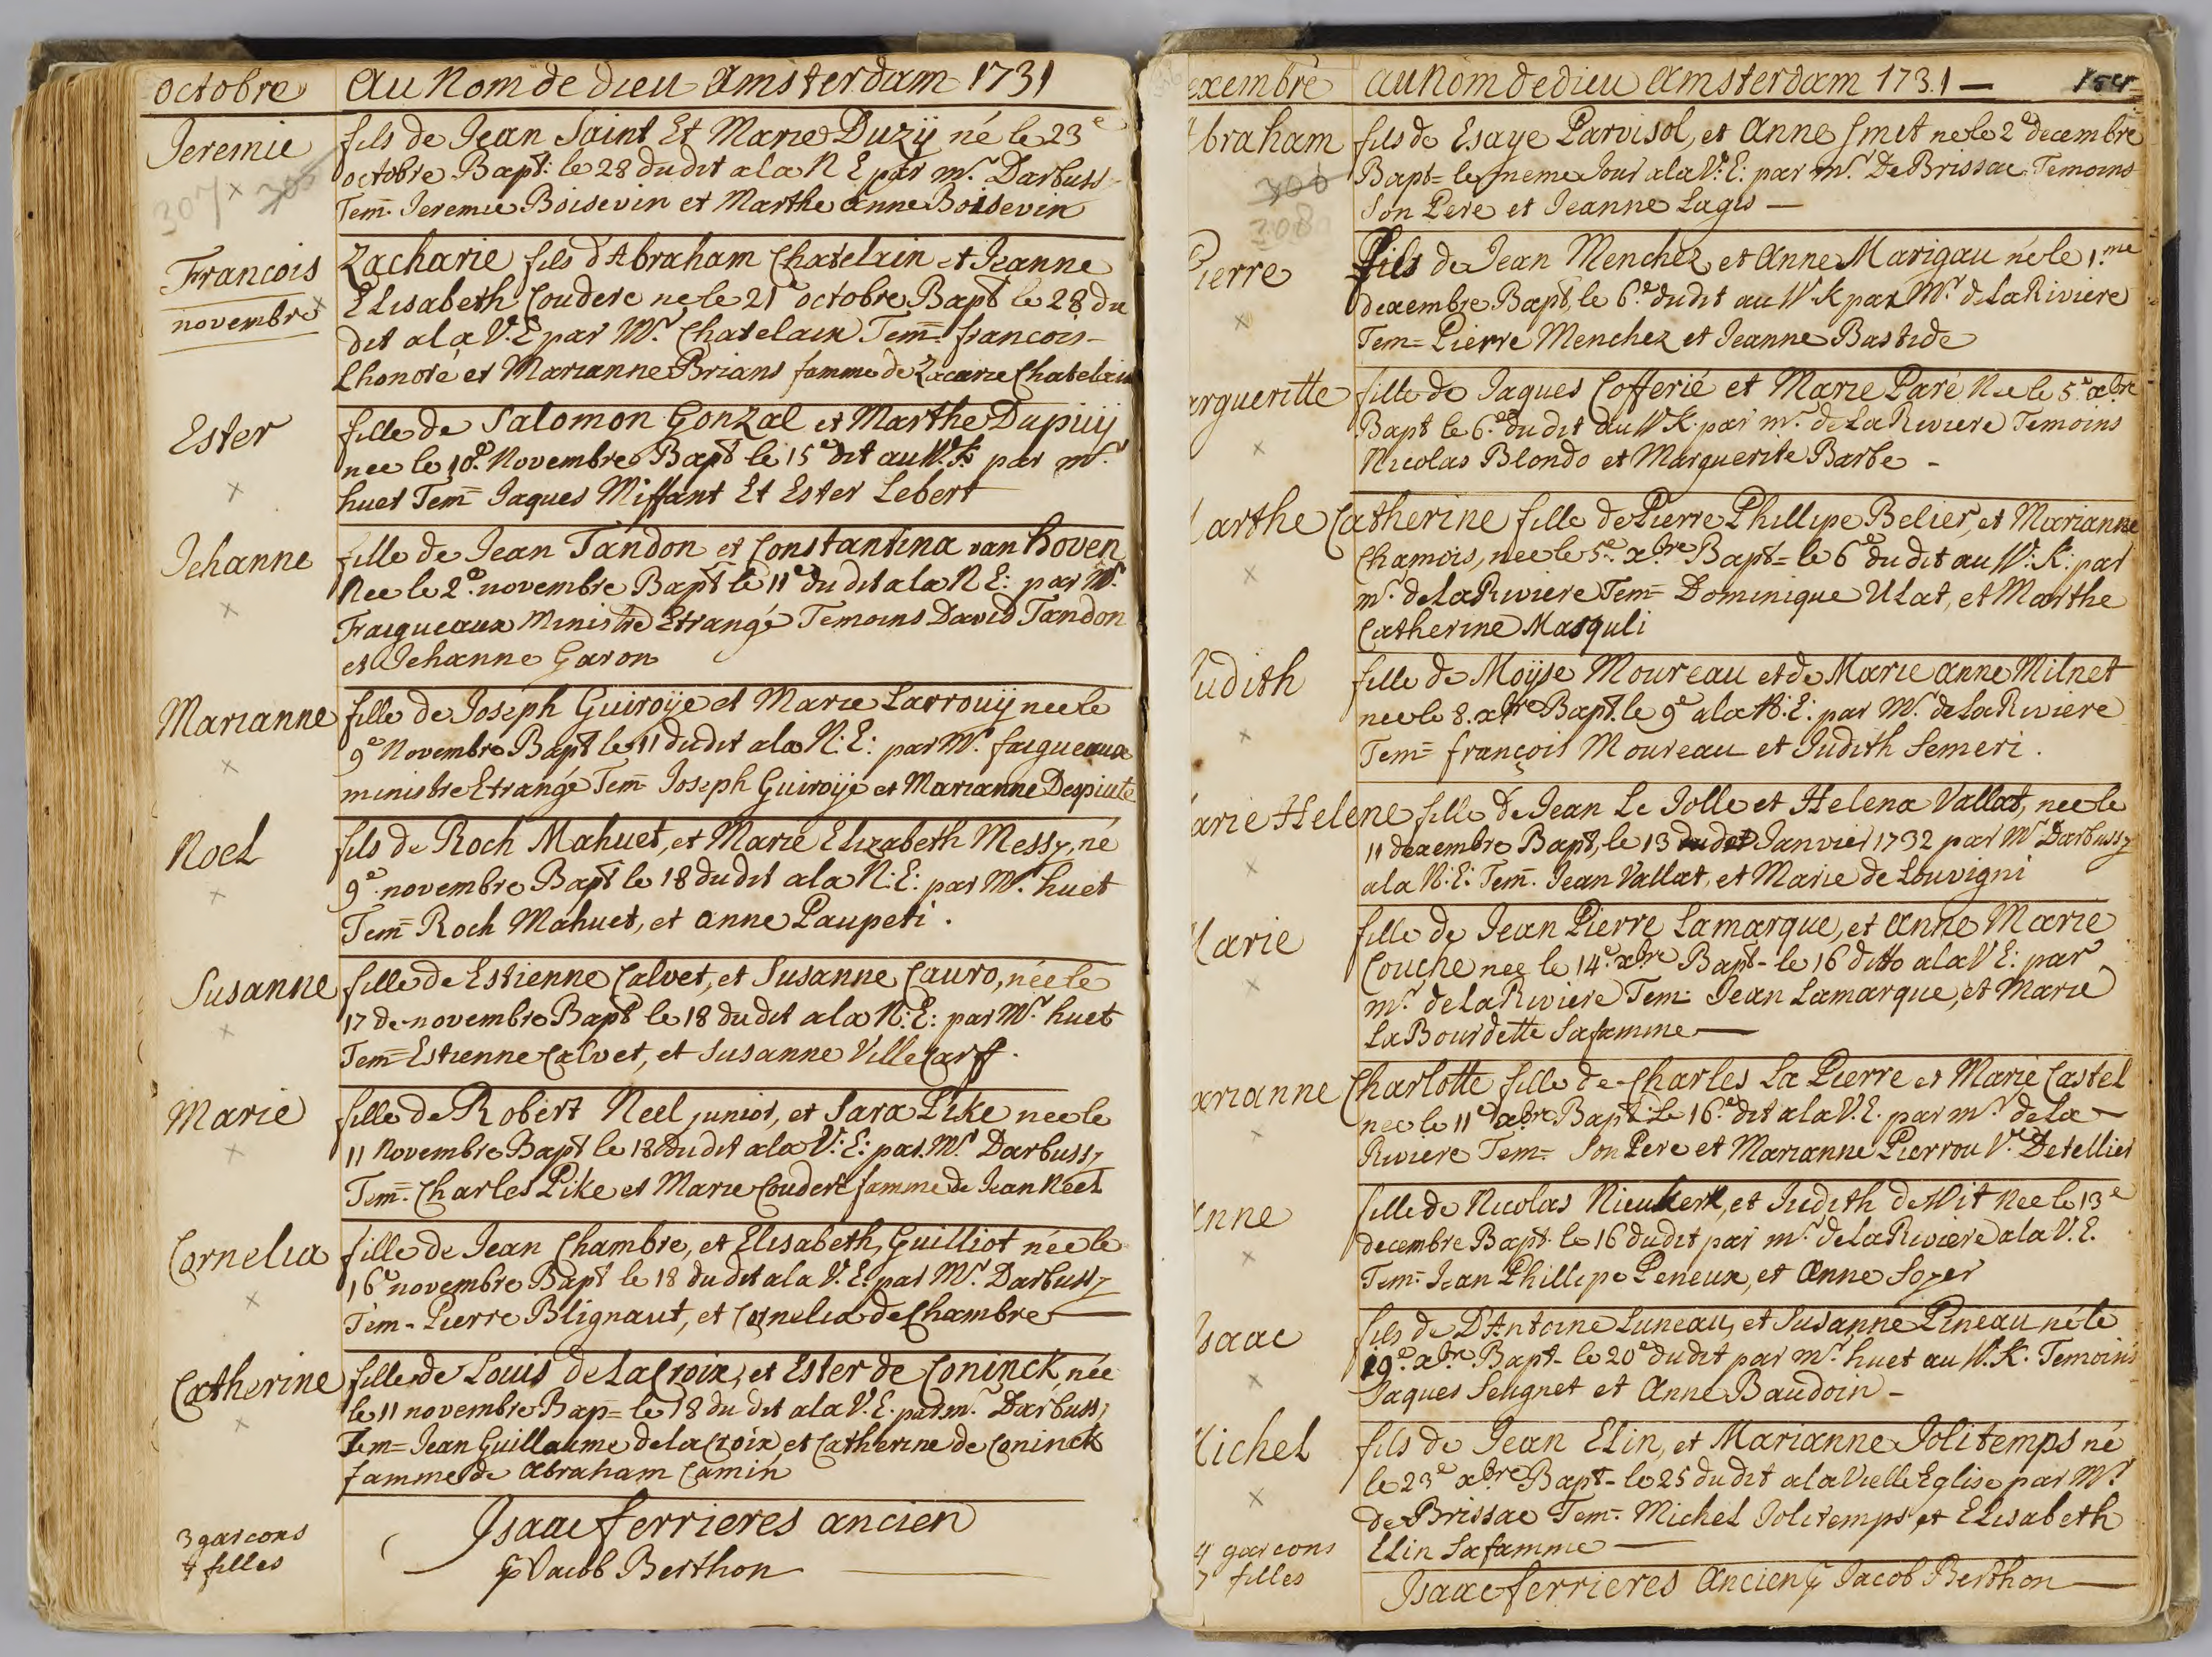 octobre
Au Nom de dieu Amsterdam 1731
Jeremie
307 × 305
fils de Jean Saint Et Marie Duzÿ né le 23e
octobre Bapt: le 28 dudit a la N E par mr. Darbussy
Tem̄. Jeremie Boisevin et Marthe anne Boisevin
Francois
novembre ×
Zacharie fils d'Abraham Chatelain et Jeanne
Elisabeth Couderc ne le 21e octobre Bapt le 28 du
dit a la V.E par Mr. Chatelain Tem̄= francois
Lhonoré et Marianne Brians famme de Zacarie Chatelain
Ester
×
fille de Salomon Gonzal et Marthe Dupuij
nee le 10e. Novembre Bapt le 15e dit au W.K. par mr.
huet Tem= Jaques Miffant Et Ester Lebert
Jehanne
×
fille de Jean Tandon et Constantina van hoven
Nee le 2e. novembre Bapt le 11e du dit a la N E: par Mr.
Fraigneaux Ministre Etrangé Temoins David Tandon
et Jehanne Garon
Marianne
×
fille de Joseph Guiroÿe et Marie Larrouÿ nee le
9e Novembre Bapt le 11 dudit a la N: E: par Mr. faigneaux
ministre Etrangé Tem= Joseph Guiroÿe et Marianne Despiute
Noel
×
fils de Roch Mahuet, et Marie Elizabeth Messy, né
9e. novembre Bapt le 18 dudit a la N: E: par Mr. huet
Tem= Roch Mahuet, et anne Paupeti.
Susanne
×
fille de Estienne Calvet, et Susanne Cauro, née le
17 de novembre Bapt le 18 dudit a la N: E: par Mr. huet
Tem= Estienne Calvet, et Susanne Villecarff.
Marie
×
fille de Robert Neel junior, et Sara Pike nee le
11 Novembre Bapt le 18 dudit a la V: E: par Mr. Darbussy
Tem=. Charles Pike et Marie Couderc famme de Jean Néel
Cornelia
×
fille de Jean Chambre, et Elisabeth, Guilliot née le
16e novembre Bapt le 18 du dit a la V. E. par Mr. Darbussy
Tem- Pierre Blignaut, et Cornelia de Chambre
Catherine
×
fille de Louis de LaCroix, et Ester de Coninck, née
le 11 novembre Bap= le 18 du dit a la V. E. par mr. Darbussy
Tem= Jean Guillaume de la Croix, et Catherine de Coninck
famme de Abraham Camin
3 garcons
7 filles
Isaac ferrieres ancien
Jacob Berthon
exembre
au Nom de dieu Amsterdam 1731 —
154
braham
306
308
fils de Esaye Parvisol, et Anne Smit ne le 2e decembre
Bapt= le meme Jour a la V: E: par mr. De Brissac. Temoins
Son Pere et Jeanne Lagis —
Pierre
×
Fils de Jean Menchez et Anne Marigau né le 1.me
dexembre Bapt, le 6e. dudit au W.K par Mr. de La Riviere
Tem= Pierre Menchez et Jeanne Bastide
argueritte
×
fille de Jaques Cofferié et Marie Paré Nee le 5e. xbre
Bapt le 6e. du dit au W K. par mr. de La Riviere Temoins
Nicolas Blondo et Marguerite Barbe -
arthe Catherine fille de Pierre Phillipe Belier, et Marianne
×
Chamois, nee le 5e. xbre Bapt= le 6e du dit au W: K: par
mr. de la Riviere Tem= Dominique Ulat, et Marthe
Catherine Masquli
Judith
×
fille de Moÿse Moureau et de Marie anne Milnet
nee le 8. xbre Bapt. le 9e a la N: E: par Mr. de La Riviere
Tem= françois Moureau et Judith Semeri.
arie Helene fille de Jean Le Jolle et Helena Vallat, nee le
×
11 dexembre Bapt, le 13 dudit Janvier 1732 par Mr Darbussy
a la N: E: Tem=. Jean Vallat, et Marie de Louvigni
Marie
×
fille de Jean Pierre Lamarque, et Anne Marie
Couche nee le 14e. xbre Bapt- le 16 ditto a la V E: par
mr. de la Riviere Tem= Jean Lamarque, et Marie
La Bourdette Sa famme —
arianne Charlotte fille de Charles La Pierre et Marie Castel
×
nee le 11e xbre Bapt: Le 16e. dit a la V. E. par mr. de la
Riviere Tem= Son Pere et Marianne Pierrou Ve. Detellier
Anne
×
fille de Nicolas Nieukerk, et Judith de Wit Nee le 13e
decembre Bapt. le 16 dudit par mr. de la Riviere a la V. E.
Tem= Jean Phillipe Peneux, et Anne Soyer
Isaac
×
fils de D'Antoine Luneau, et Susanne Pineau né le
19e. xbre Bapt- le 20e dudit par mr. huet au W. K. Temoins
Jaques Seugnet et Anne Baudoin -
Michel
×
fils de Jean Elin, et Marianne Jolitemps né
le 23e xbre Bapt- le 25 du dit a la Vielle Eglise par Mr.
de Brissac Tem=. Michel Jolitemps, et Elisabeth
Elin Sa famme —
4 garcons
7 filles
Isaac ferrieres Ancien Jacob Berthon —